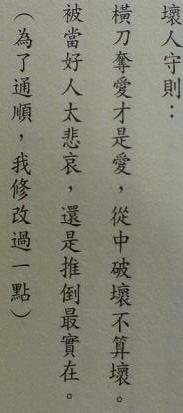 壞人守則：
橫刀奪愛才是愛，從中破壞不算壞。
被當好人太悲哀，還是推倒最實在。
（為了通順，我修改過一點）